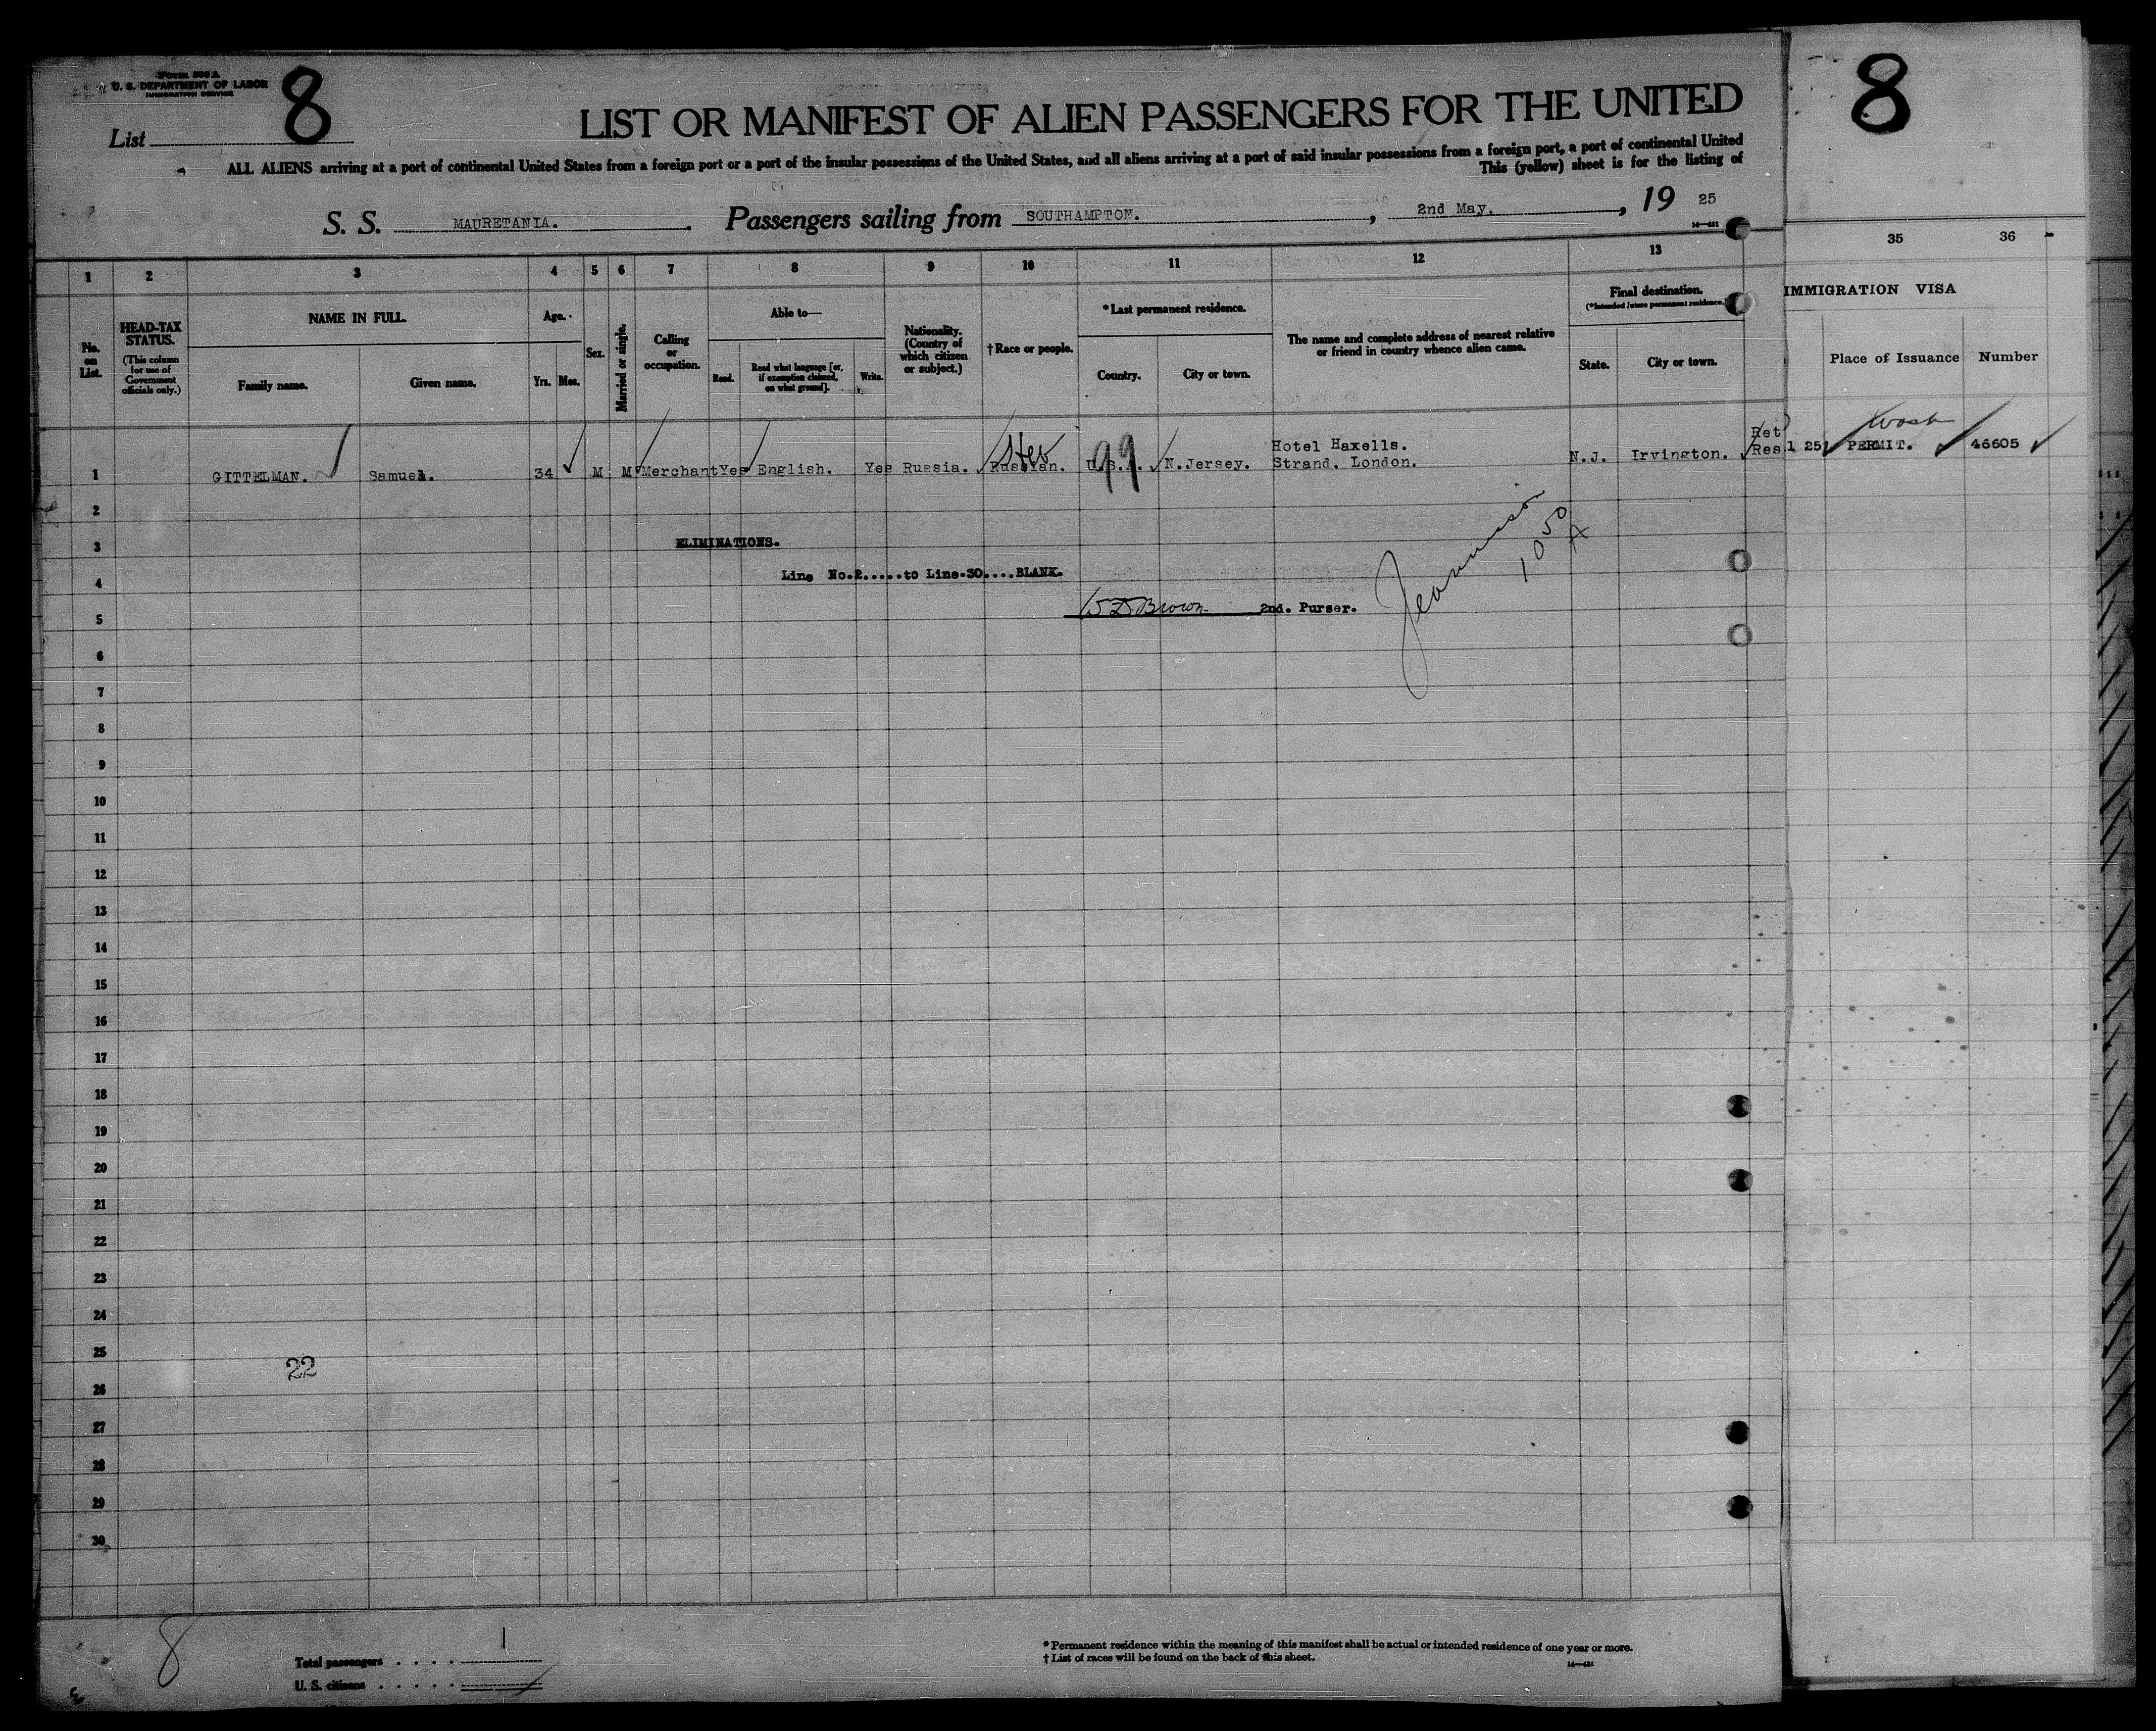 Form 500 A
U. S. DEPARTMENT OF LABOR
IMMIGRATION SERVICE
List 8
LIST OR MANIFEST OF ALIEN PASSENGERS FOR THE UNITED
ALL ALIENS arriving at a port of continental United States from a foreign port or a port of the insular possessions of the United States, and all aliens arriving at a port of said insular possessions from a foreign port, a port of continental United
This (yellow) sheet is for the listing of
S. S. MAURETANIA. Passengers sailing from SOUTHAMPTON. , 2nd May. , 19 25
8
1 2 3 4 5 6 7 8 9 10 11 12 13 35 36
No. on List.
HEAD-TAX STATUS.
(This column for use of Government officials only.)
NAME IN FULL.
Family name. Given name.
Age.
Yrs. Mos.
Sex.
Married or single.
Calling or occupation.
Able to—
Read. Read what language [or, if exemption claimed, on what ground]. Write.
Nationality. (Country of which citizen or subject.)
† Race or people.
* Last permanent residence.
Country. City or town.
The name and complete address of nearest relative or friend in country whence alien came.
Final destination.
(* Intended future permanent residence.)
State. City or town.
IMMIGRATION VISA
Place of Issuance Number
1 GITTELMAN. Samuel. 34 M M Merchant Yes English. Yes Russia. Russian. Heb U.S.A. 99 N.Jersey. Hotel Haxells. Strand. London. N.J. Irvington. Ret Res 1 25 PERMIT. Wash 46605
2
3 ELIMINATIONS.
4 Line No.2.....to Line.30....BLANK.
5 Brown 2nd. Purser.
10 50 A
6
7
8
9
10
11
12
13
14
15
16
17
18
19
20
21
22
23
24
25
22
26
27
28
29
30
8
Total passengers . . . . 1
U. S. citizens . . . . .
* Permanent residence within the meaning of this manifest shall be actual or intended residence of one year or more.
† List of races will be found on the back of this sheet.